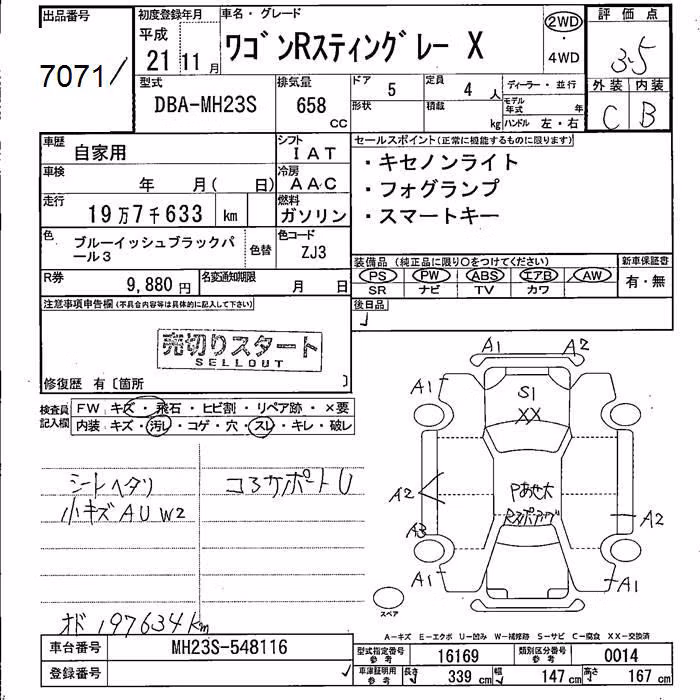 出品番号
7071/
初度登録年月
平成
21 11 月
車名・グレード
ワゴンRスティングレー X
2WD
・
4WD
評価点
3.5
外装 内装
C B
型式
DBA-MH23S
排気量
658
CC
ドア 5
定員 4 人
形状
積載 kg
ディーラー・並行
モデル年式 年
ハンドル 左・右
車歴
自家用
シフト
IAT
車検
年 月( 日)
冷房
AAC
走行
19万7千633 km
燃料
ガソリン
色
ブルーイッシュブラックパール3
色替
色コード
ZJ3
R券
9,880 円
名変通知期限
月 日
セールスポイント(正常に機能するものに限ります)
・キセノンライト
・フォグランプ
・スマートキー
装備品 (純正品に限り○をつけてください)
PS PW ABS エアB AW
SR ナビ TV カワ
新車保証書
有・無
後日品
注意事項申告欄(不具合内容等は具体的に記入して下さい)
売切りスタート
SELLOUT
修復歴 有〔箇所 〕
検査員
記入欄
FW キズ・飛石・ヒビ割・リペア跡・×要
内装 キズ・汚レ・コゲ・穴・スレ・キレ・破レ
シートヘタリ
小キズAUW2
コアサポートU
オド197634km
A1 A2
A1 A1
S1
XX
A2
Pあせ大
A2
A3
A1 A1
スペア
A-キズ E-エクボ U-凹み W-補修跡 S-サビ C-腐食 XX-交換済
車台番号
MH23S-548116
登録番号
型式指定番号
参考
16169
類別区分番号
参考
0014
車庫証明用
参考
長さ 339 cm
幅 147 cm
高さ 167 cm